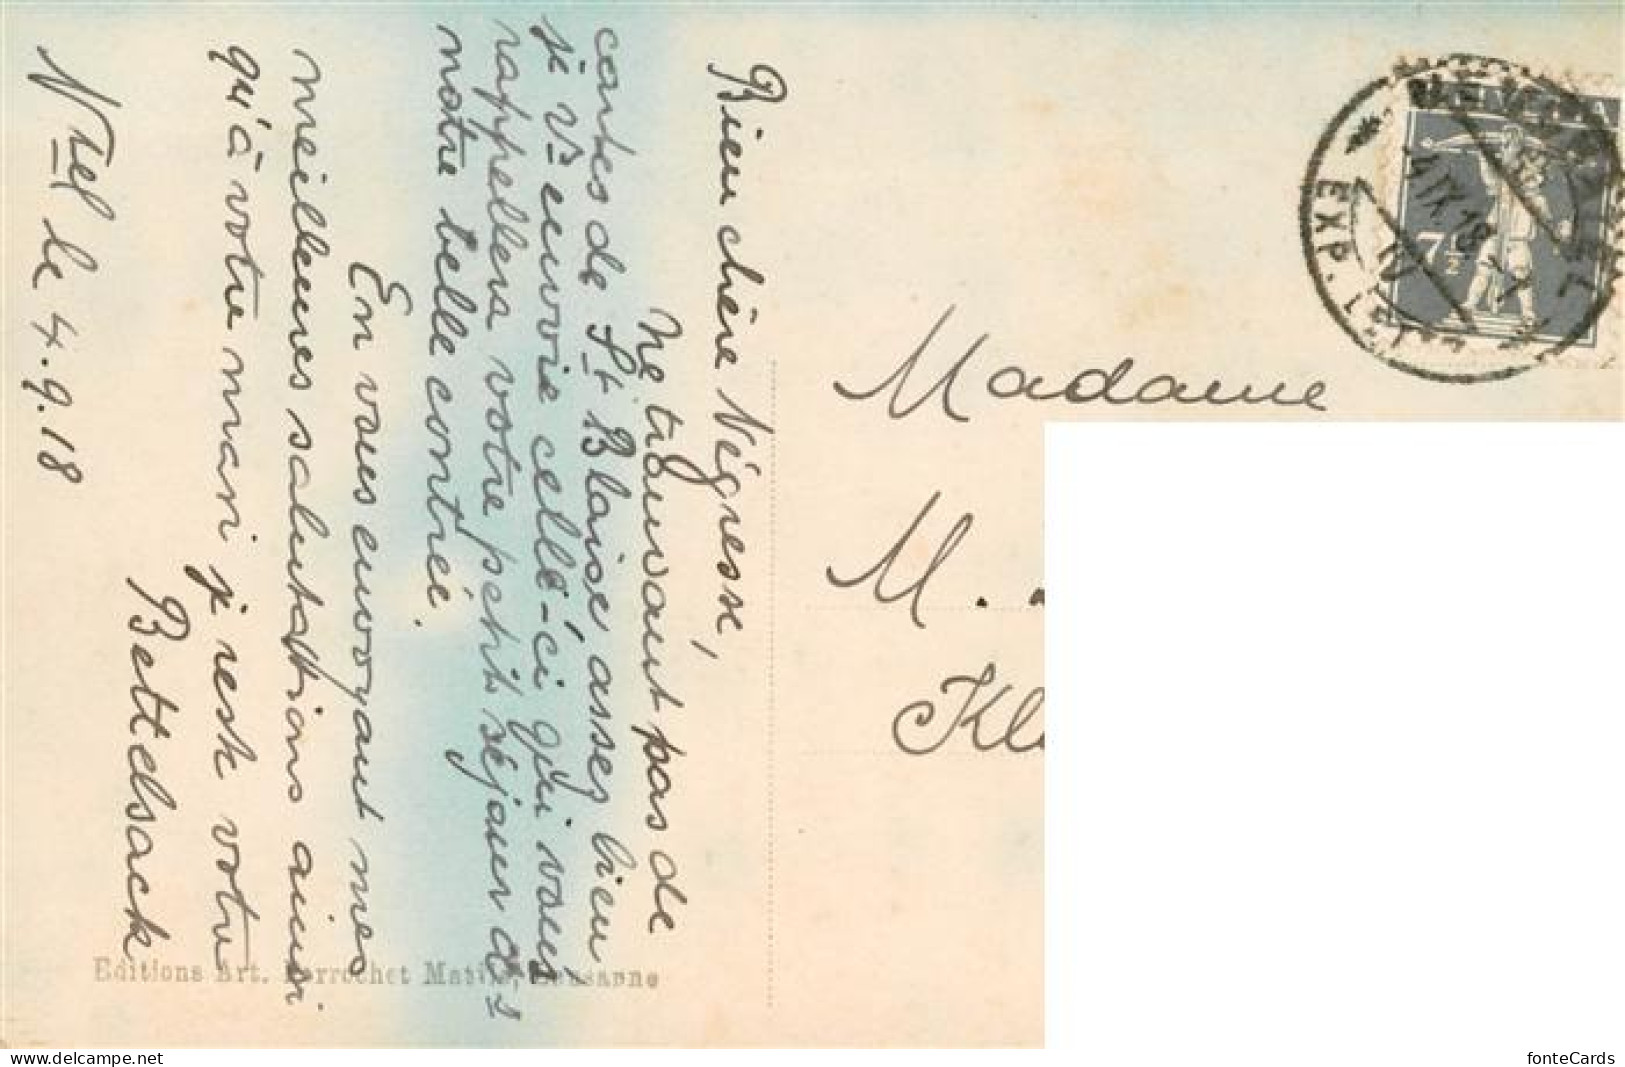 Bien chère Négresse,
Ne trouvant pas de
cartes de St Blaise assez bien
je vs envoie celle-ci qui vous
rappellera votre petit séjour ds
notre belle contrée.
En vous envoyant mes
meilleures salutations ainsi
qu'à votre mari je reste votre
Bettelsack
Ntel le 4.9.18
Editions Art. Perrochet Matile, Lausanne
Madame
M.
HELVETIA
7½
EXP. LET.
4 IX 18
fonteCards